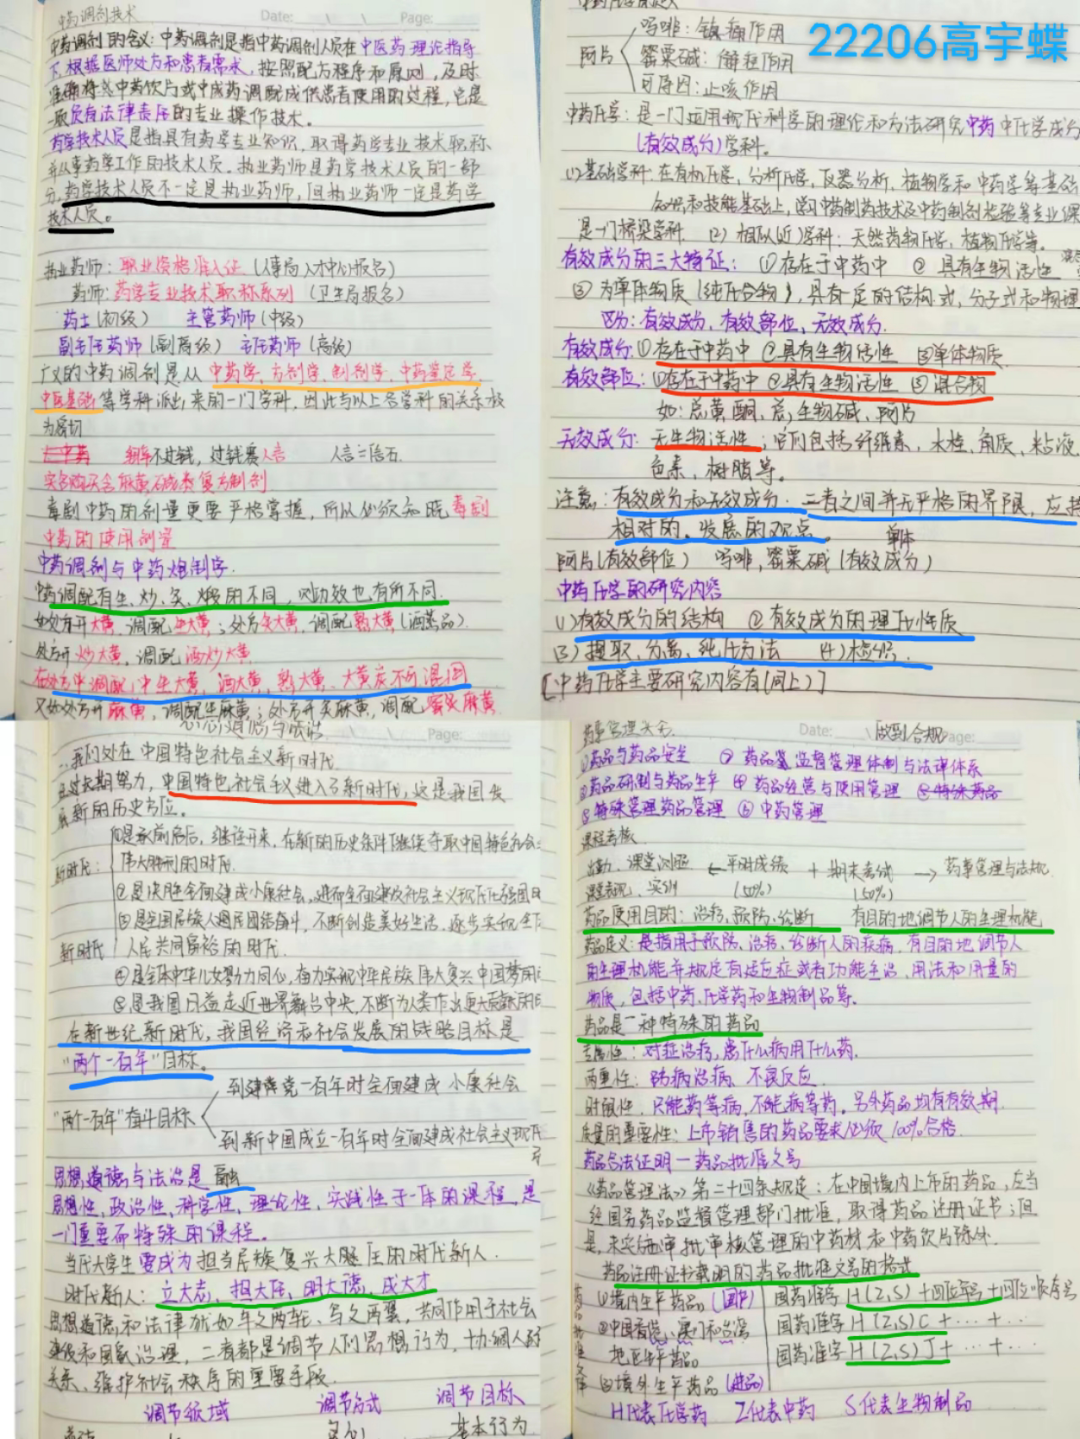 中药调剂技术
Date:
Page:
中药调剂的含义:中药调剂是指中药调剂人员在中医药理论指导
下,根据医师处方和患者需求,按照配方程序和原则,及时
准确将中药饮片或中成药调配成供患者使用的过程,它是
一项负有法律责任的专业操作技术。
药学技术人员是指具有药学专业知识,取得药学专业技术职称
并从事药学工作的技术人员。执业药师是药学技术人员的一部
分,药学技术人员不一定是执业药师,但执业药师一定是药学
技术人员。
执业药师:职业资格准入证(人事局人才中心报名)
药师:药学专业技术职称系列(卫生局报名)
药士(初级) 主管药师(中级)
副主任药师(副高级) 主任药师(高级)
广义的中药调剂是从中药学、方剂学、制剂学、中药鉴定学、
中医基础等学科派出来的一门学科,因此与以上各学科的关系极
为密切
不过钱,过钱赛人言 人言=信石
实名购买含麻黄碱类复方制剂
毒剧中药的剂量更要严格掌握,所以必须知晓毒剧
中药的使用剂量
中药调剂与中药炮制学.
中药调配有生、炒、炙、煅的不同,则功效也有所不同.
如处方开大黄,调配生大黄;处方炙大黄,调配熟大黄(酒蒸品).
处方开炒大黄,调配酒炒大黄
在处方中调配,中生大黄,酒大黄,熟大黄、大黄炭不可混用
又如处方开麻黄,调配生麻黄;处方开炙麻黄,调配蜜炙麻黄.
22206高宇蝶
吗啡:镇痛作用
阿片 罂粟碱:解痉作用
可待因:止咳作用
中药化学:是一门运用现代科学的理论和方法研究中药中化学成分
(有效成分)学科。
(1)基础学科:在有机化学,分析化学,仪器分析,植物学和中药学等基础
知识和技能基础上,学习中药制药技术及中药制剂检验等专业课
是一门桥梁学科 (2)相似(近)学科:天然药物化学,植物化学等.
有效成分的三大特征:①存在于中药中 ②具有生物活性
③为单体物质(纯化合物),具有一定的结构式,分子式和物理
区分:有效成分,有效部位,无效成分.
有效成分:①存在于中药中 ②具有生物活性 ③单体物质
有效部位:①存在于中药中 ②具有生物活性 ③混合物
如:总黄酮、总生物碱、阿片
无效成分:无生物活性;它们包括纤维素、木栓、角质、粘液
色素、树脂等.
注意:有效成分和无效成分.二者之间并无严格的界限,应持
相对的,发展的观点. 单体
阿片(有效部位) 吗啡,罂粟碱(有效成分)
中药化学的研究内容
(1)有效成分的结构 ②有效成分的理化性质
(3)提取、分离、纯化方法 (4)检识.
[中药化学主要研究内容有(同上)]
思想道德与法治
Page:
一.我们处在中国特色社会主义新时代.
经过长期努力,中国特色社会主义进入了新时代,这是我国发
展新的历史方位。
①是承前启后,继往开来,在新的历史条件下继续夺取中国特色社会主
新时代: 伟大胜利的时代.
②是决胜全面建成小康社会,进而全面建设社会主义现代化强国
③是全国各族人民团结奋斗,不断创造美好生活,逐步实现全
新时代 人民共同富裕的时代.
④是全体中华儿女勠力同心,奋力实现中华民族伟大复兴中国梦的
⑤是我国日益走近世界舞台中央,不断为人类作出更大贡献的
在新世纪新时代,我国经济和社会发展的战略目标是
“两个一百年”目标。
到建党一百年时全面建成小康社会
“两个一百年”奋斗目标
到新中国成立一百年时全面建成社会主义现代
思想道德与法治是一门融
思想性,政治性,科学性,理论性,实践性于一体的课程,是
一门重要而特殊的课程。
当代大学生要成为担当民族复兴大任的时代新人.
时代新人:立大志,担大任,明大德,成大才
思想道德和法律犹如车之两轮、鸟之两翼,共同作用于社会
建设和国家治理,二者都是调节人们思想行为,协调人际
关系、维护社会秩序的重要手段.
调节领域 调节方式 调节目标
基本行为
Date:
Page:
做到合规
①药品与药品安全 ②药品监督管理体制与法律体系
③药品研制与药品生产 ④药品经营与使用管理 ⑤特殊药品
⑤特殊管理药品管理 ⑥中药管理
课程考核
出勤、课堂测验 ← 平时成绩 + 期末考试 → 药事管理与法规.
课堂表现、实训 (50%) (50%)
药品使用目的:治疗、预防、诊断 有目的地调节人的生理机能
药品定义:是指用于预防、治疗、诊断人的疾病,有目的地调节人
的生理机能并规定有适应症或者功能主治、用法和用量的
物质,包括中药、化学药和生物制品等.
药品是一种特殊的药品
专属性:对症治疗,患什么病用什么药.
两重性:防病治病、不良反应.
时限性:只能药等病,不能病等药.另外药品均有有效期.
质量的重要性:上市销售的药品要求必须100%合格.
药品合法证明—药品批准文号
《药品管理法》第二十四条规定:在中国境内上市的药品,应当
经国务药品监督管理部门批准,取得药品注册证书;但
是,未实施审批审核管理的中药材和中药饮片除外.
药品注册证书载明的药品批准文号的格式
①境内生产药品(国产) 国药准字H(Z,S)+四位年号+四位顺序号
②中国香港、澳门和台湾 国药准字H(Z,S)C+……+……
地区生产药品. 国药准字H(Z,S)J+……+……
③境外生产药品(进品)
H代表化学药 Z代表中药 S代表生物制品